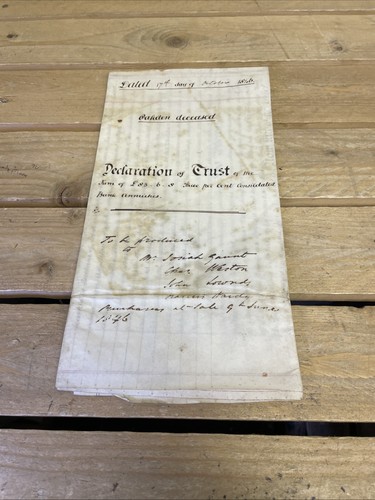 Dated 17th day of October 1846
Oakden deceased
Declaration of Trust of the
Sum of £ 6 Three per Cent Consolidated
Bank Annuities
To be produced
to Mr Josiah Gaunt
Weston
John Lownds
Hardy
Purchasers at Sale 9th
1846